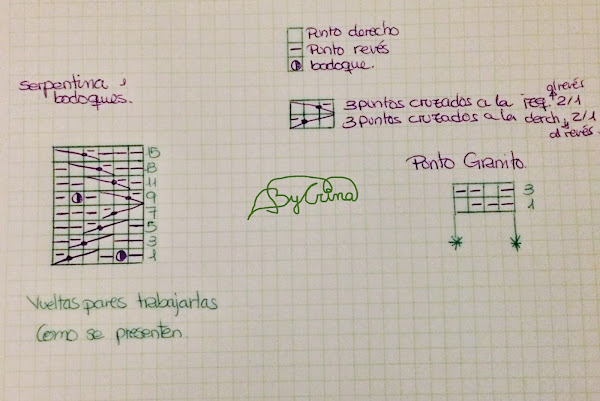 Punto derecho
Punto revés
bodoque.
serpentina y
bodoques.
al revés
3 puntos cruzados a la izq. 2/1
3 puntos cruzados a la derch. 2/1
al revés.
Punto Granito.
15
13
11
9
7
5
3
1
By Crina
3
1
Vueltas pares trabajarlas
Como se presenten.